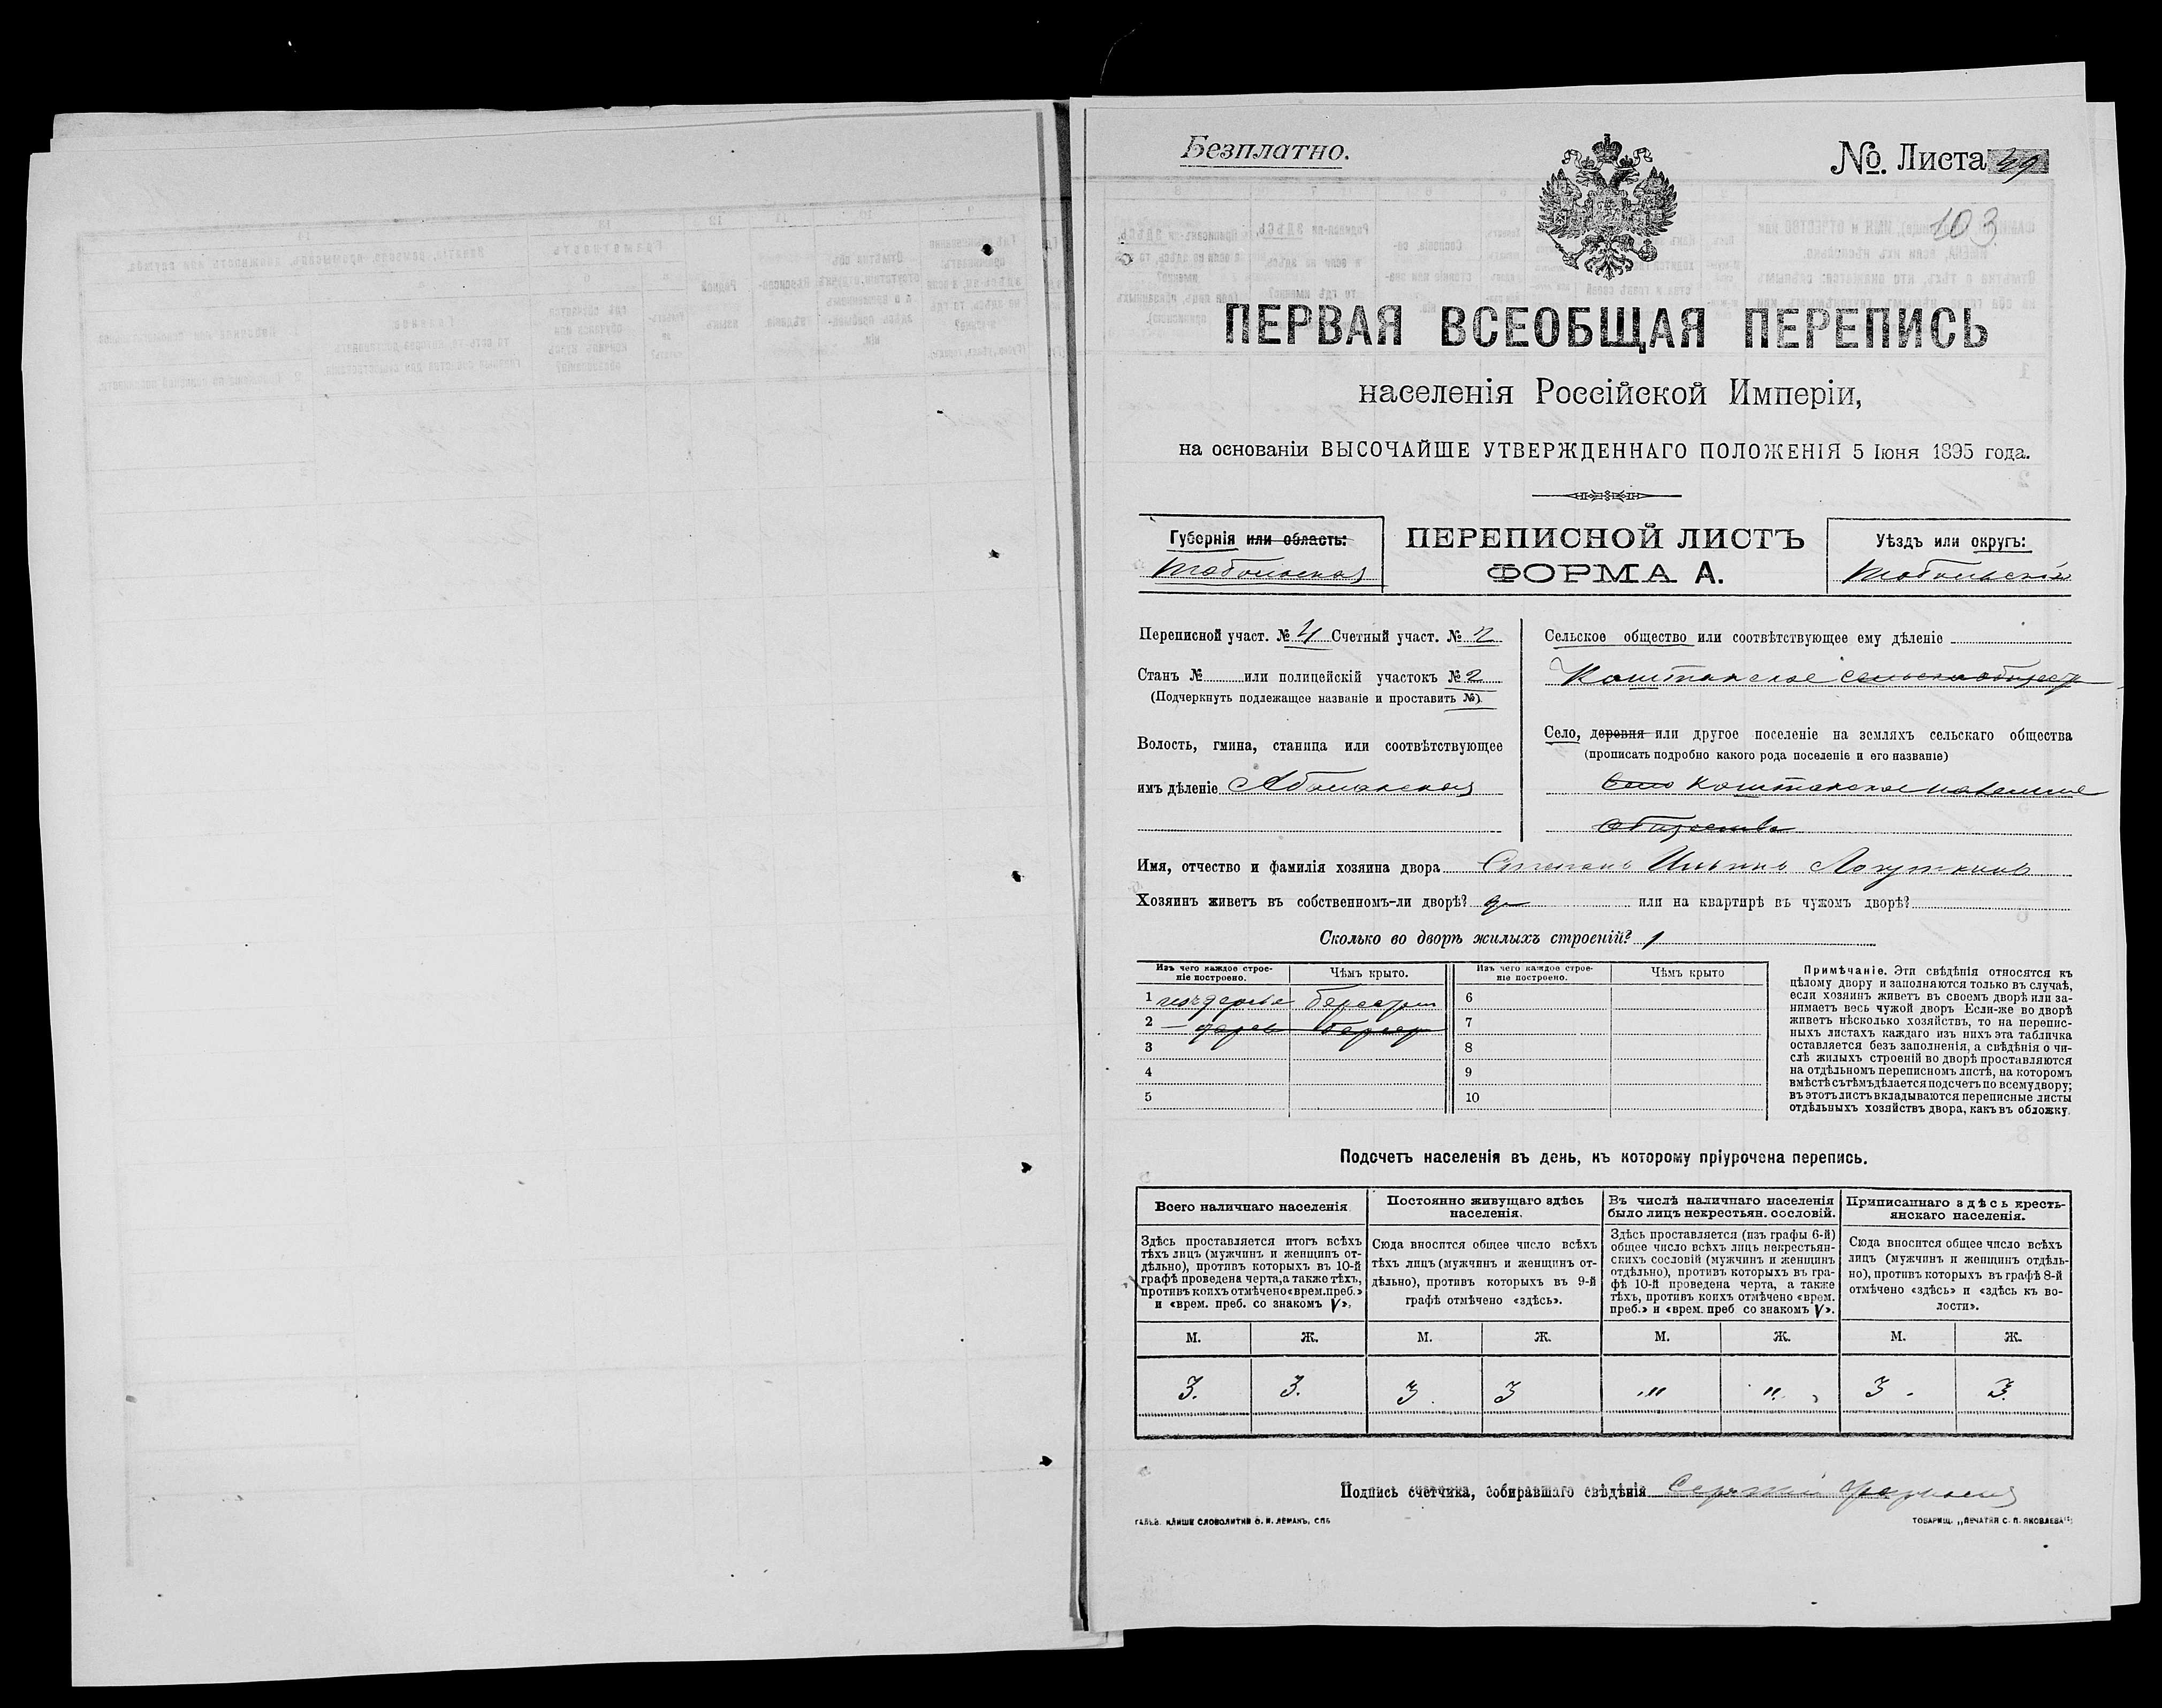 Безплатно.
№. Листа 49
103.
ПЕРВАЯ ВСЕОБЩАЯ ПЕРЕПИСЬ
населенія Россійской Имперіи,
на основаніи ВЫСОЧАЙШЕ УТВЕРЖДЕННАГО ПОЛОЖЕНІЯ 5 Іюня 1895 года.
Губернія или область:
Тобольская
ПЕРЕПИСНОЙ ЛИСТЪ
ФОРМА А.
Уѣздъ или округъ:
Тобольскій
Переписной участ. № 4 Счетный участ. №
Станъ № или полицейскій участокъ № 2
(Подчеркнуть подлежащее названіе и проставить №).
Волость, гмина, станица или соотвѣтствующее
имъ дѣленіе Абалакская
Сельское общество или соотвѣтствующее ему дѣленіе
Коштакское сельско общест
Село, деревня или другое поселеніе на земляхъ сельскаго общества
(прописать подробно какого рода поселеніе и его названіе)
Село Коштакское
общества
Имя, отчество и фамилія хозяина двора Степанъ Ильинъ Лопуткинъ
Хозяинъ живетъ въ собственномъ-ли дворѣ? да или на квартирѣ въ чужомъ дворѣ?
Сколько во дворѣ жилыхъ строеній? 1
Изъ чего каждое строе-
ніе построено.
Чѣмъ крыто.
Изъ чего каждое строе-
ніе построено.
Чѣмъ крыто
1 6
2 7
3 8
4 9
5 10
Примѣчаніе. Эти свѣдѣнія относятся къ
цѣлому двору и заполняются только въ случаѣ,
если хозяинъ живетъ въ своемъ дворѣ или за-
нимаетъ весь чужой дворъ Если-же во дворѣ
живетъ нѣсколько хозяйствъ, то на перепис-
ныхъ листахъ каждаго изъ нихъ эта табличка
оставляется безъ заполненія, а свѣдѣнія о чи-
слѣ жилыхъ строеній во дворѣ проставляются
на отдѣльномъ переписномъ листѣ, на которомъ
вмѣстѣ съ тѣмъ дѣлается подсчетъ по всему двору;
въ этотъ листъ вкладываются переписные листы
отдѣльныхъ хозяйствъ двора, какъ въ обложку.
Подсчетъ населенія въ день, къ которому пріурочена перепись.
Всего наличнаго населенія
Здѣсь проставляется итогъ всѣхъ
тѣхъ лицъ (мужчинъ и женщинъ от-
дѣльно), противъ которыхъ въ 10-й
графѣ проведена черта, а также тѣхъ,
противъ коихъ отмѣчено «врем. преб.»
и «врем. преб. со знакомъ V»,
Постоянно живущаго здѣсь
населенія.
Сюда вносится общее число всѣхъ
тѣхъ лицъ (мужчинъ и женщинъ от-
дѣльно), противъ которыхъ въ 9-й
графѣ отмѣчено «здѣсь».
Въ числѣ наличнаго населенія
было лицъ некрестьян. сословій.
Здѣсь проставляется (изъ графы 6-й)
общее число всѣхъ лицъ некрестьян-
скихъ сословій (мужчинъ и женщинъ
отдѣльно), противъ которыхъ въ гра-
фѣ 10-й проведена черта, а также
тѣхъ, противъ коихъ отмѣчено «врем.
преб.» и «врем. преб со знакомъ V».
Приписаннаго здѣсь кресть-
янскаго населенія.
Сюда вносится общее число всѣхъ
лицъ (мужчинъ и женщинъ отдѣль-
но), противъ которыхъ въ графѣ 8-й
отмѣчено «здѣсь» и «здѣсь къ во-
лости».
М. Ж. М. Ж. М. Ж. М. Ж.
3. 3. 3. 3 " " 3. 3.
Подпись счетчика, собиравшаго свѣдѣнія
ГАЛЬВ. КЛИШЕ СЛОВОЛИТНИ О. И. ЛЕМАНЪ, СПБ
ТОВАРИЩ. „ПЕЧАТНЯ С. П. ЯКОВЛЕВА"